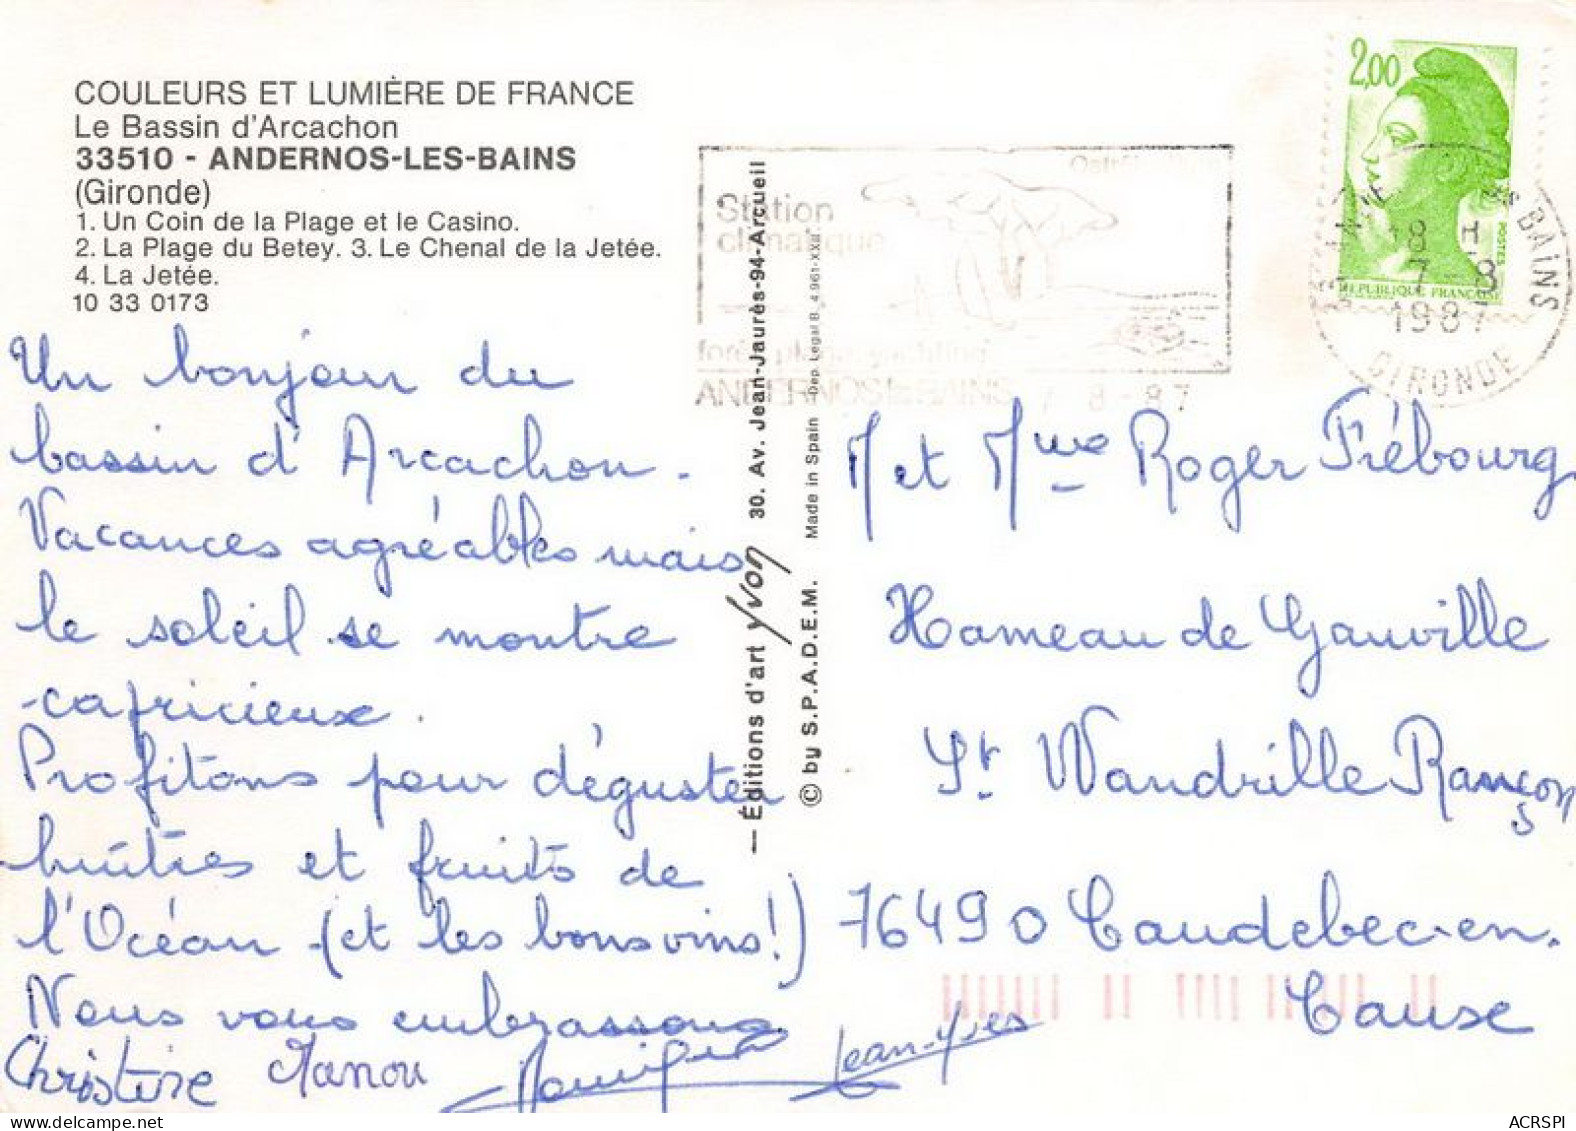 COULEURS ET LUMIÈRE DE FRANCE
Le Bassin d'Arcachon
33510 - ANDERNOS-LES-BAINS
(Gironde)
1. Un Coin de la Plage et le Casino.
2. La Plage du Betey. 3. Le Chenal de la Jetée.
4. La Jetée.
10 33 0173
Un bonjour du
bassin d'Arcachon.
Vacances agréables mais
le soleil se montre
capricieux.
Profitons pour déguster
huîtres et fruits de
l'Océan (et les bons vins!)
Nous vous embrassons
Christine Manou
Jean-Yves
— Éditions d'art Yvon 30. Av. Jean-Jaurès-94-Arcueil
© by S.P.A.D.E.M. Made in Spain Dép. Légal B. 4.961-XXII
Station
climatique
forêt plage yachting
ANDERNOS les BAINS 7-8-87
2,00
POSTES
REPUBLIQUE FRANÇAISE
18 H
7-8
1987
BAINS
GIRONDE
M et Mme Roger Frébourg
Hameau de Gauville
St Wandrille Rançon
76490 Caudebec-en.
Cause
ACRSPI